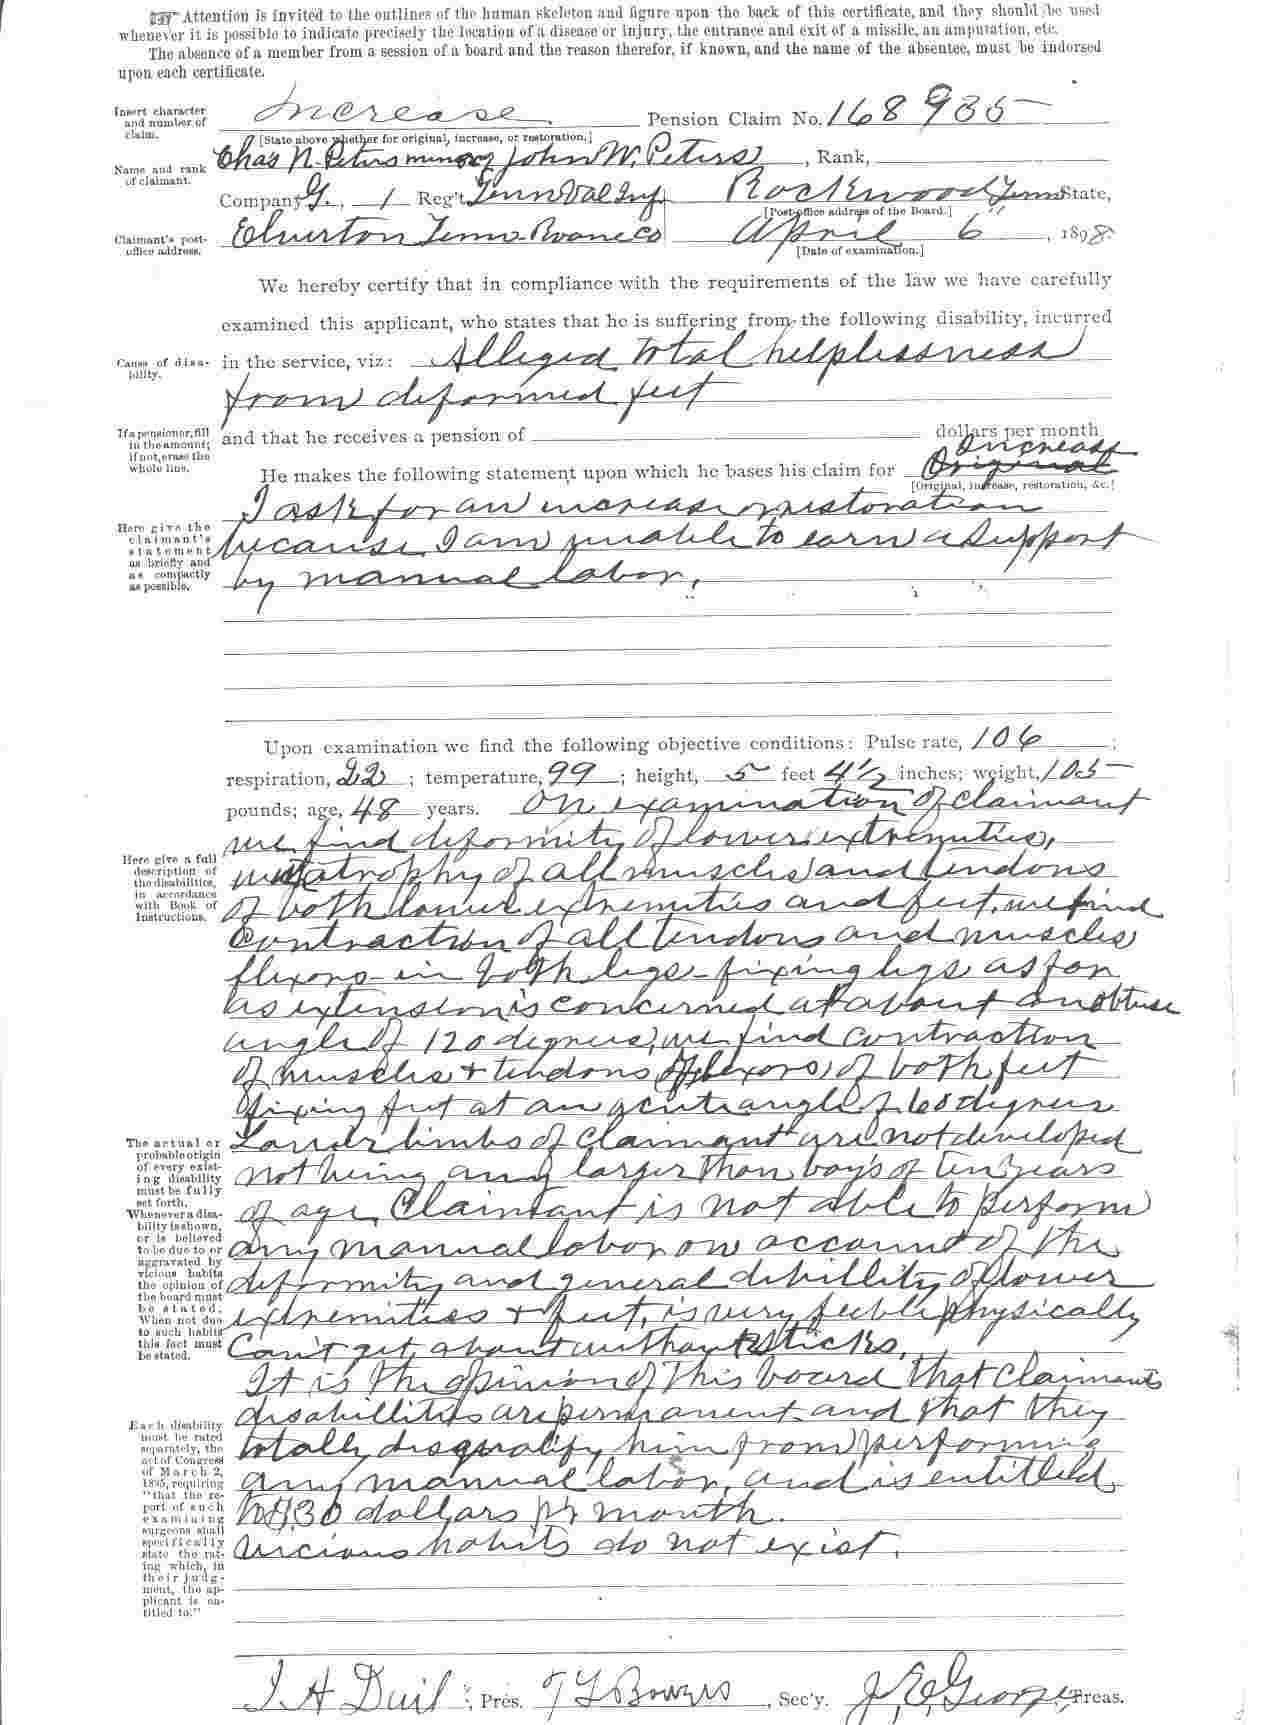 ☞ Attention is invited to the outlines of the human skeleton and figure upon the back of this certificate, and they should be used
whenever it is possible to indicate precisely the location of a disease or injury, the entrance and exit of a missile, an amputation, etc.
The absence of a member from a session of a board and the reason therefor, if known, and the name of the absentee, must be indorsed
upon each certificate.
Insert character and number of claim.
Increase Pension Claim No. 168935
[State above whether for original, increase, or restoration.]
Name and rank of claimant.
Chas N. Peters minor of John W. Peters, Rank,
Company G., 1 Reg't Tenn Val Inf Rockwood Tenn State,
[Post-office address of the Board.]
Claimant's post-office address.
Elverton Tenn. Roane Co April 6", 1898.
[Date of examination.]
We hereby certify that in compliance with the requirements of the law we have carefully
examined this applicant, who states that he is suffering from the following disability, incurred
Cause of disability.
in the service, viz: Alleged total helplessness
from deformed feet
If a pensioner, fill in the amount; if not, erase the whole line.
and that he receives a pension of dollars per month
Increase
He makes the following statement upon which he bases his claim for Original
[Original, increase, restoration, &c.]
Here give the claimant's statement as briefly and as compactly as possible.
I ask for an increase or restoration
because I am unable to earn a support
by manual labor.
Upon examination we find the following objective conditions: Pulse rate, 106;
respiration, 22; temperature, 99; height, 5 feet 4½ inches; weight, 105
pounds; age, 48 years. On examination of claimant
we find deformity of lower extremities,
Here give a full description of the disabilities, in accordance with Book of Instructions.
atrophy of all muscles and tendons
of both lower extremities and feet. we find
Contraction of all tendons and muscles
flexors in both legs fixing legs as far
as extension is concerned at about an obtuse
angle of 120 degrees, we find contraction
of muscles + tendons flexors of both feet
fixing feet at an acute angle of 60 degrees
Lower limbs of claimant are not developed
not being any larger than boy's of ten years
of age. Claimant is not able to perform
any manual labor on account of the
deformity and general debillity of lower
extremities + feet, is very feeble physically
Can't get about without sticks.
The actual or probable origin of every existing disability must be fully set forth.
Whenever a disability is shown, or is believed to be due to or aggravated by vicious habits the opinion of the board must be stated. When not due to such habits this fact must be stated.
It is the opinion of this board that claimants
disabillities are permanent and that they
totally disqualify him from performing
any manual labor, and is entitled
to $30 dollars pr month.
vicious habits do not exist.
Each disability must be rated separately, the act of Congress of March 2, 1895, requiring "that the report of such examining surgeons shall specifically state the rating which, in their judgment, the applicant is entitled to."
, Pres. T L Bowers, Sec'y. J. E. George, Treas.